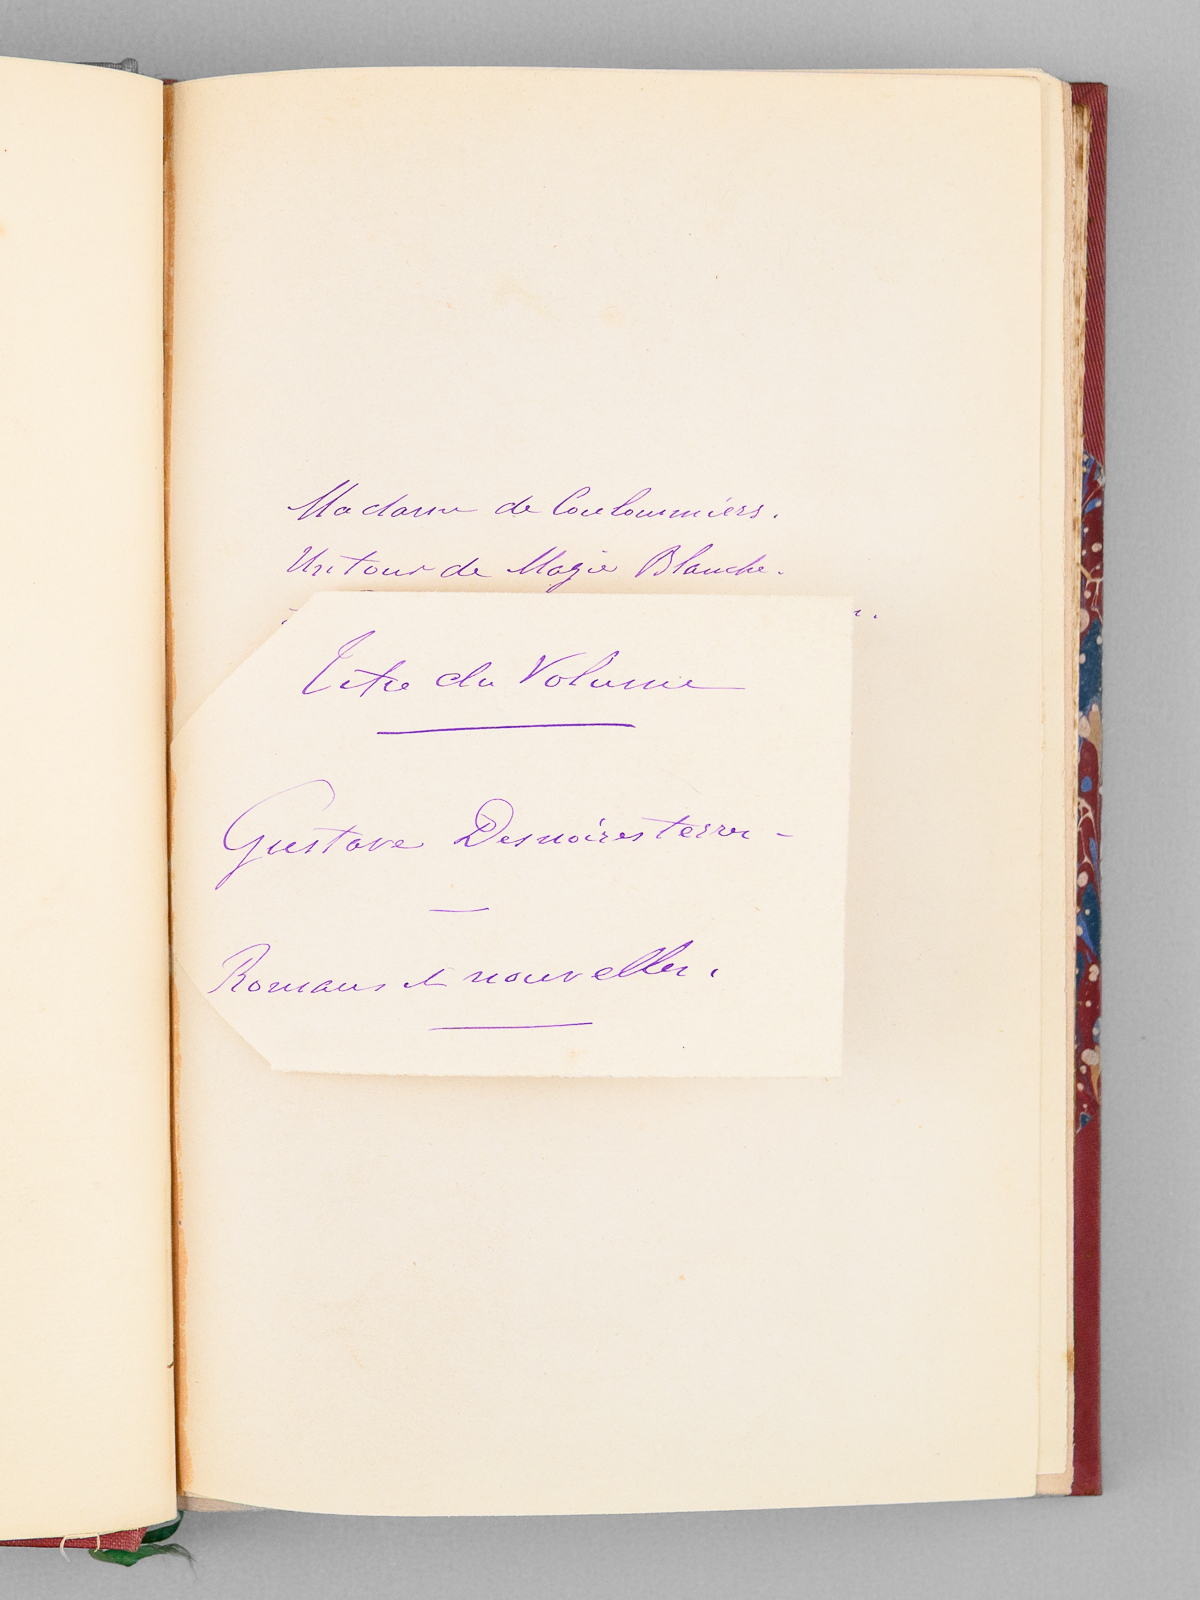 Madame de Couloummiers.
Un tour de Magie Blanche.
Titre du Volume
Gustave Desnoiresterres -
Romans et nouvelles.